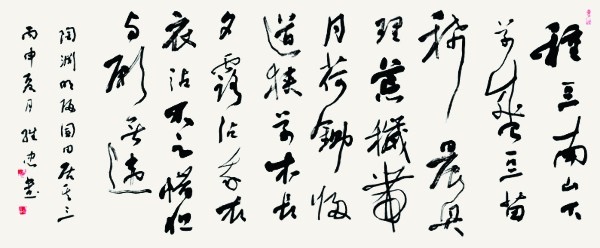 種豆南山下
草盛豆苗
稀晨興
理荒穢帶
月荷鋤歸
道狹草木長
夕露沾我衣
衣沾不足惜但
與願無違
陶淵明歸園田居其三
丙申夏月 書